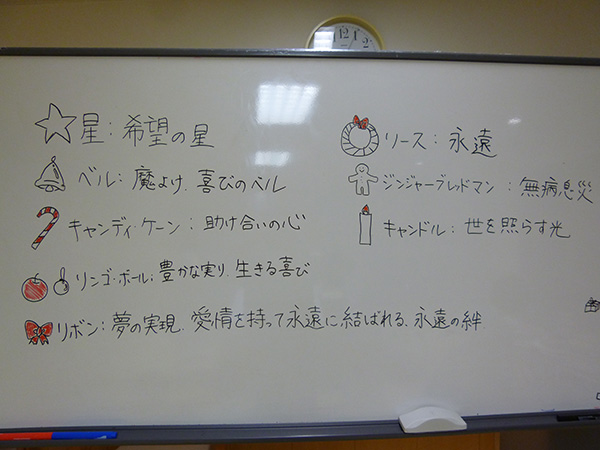 星：希望の星
ベル：魔よけ、喜びのベル
キャンディ・ケーン：助け合いの心
リンゴ・ボール：豊かな実り、生きる喜び
リボン：夢の実現、愛情を持って永遠に結ばれる、永遠の絆
リース：永遠
ジンジャーブレッドマン：無病息災
キャンドル：世を照らす光